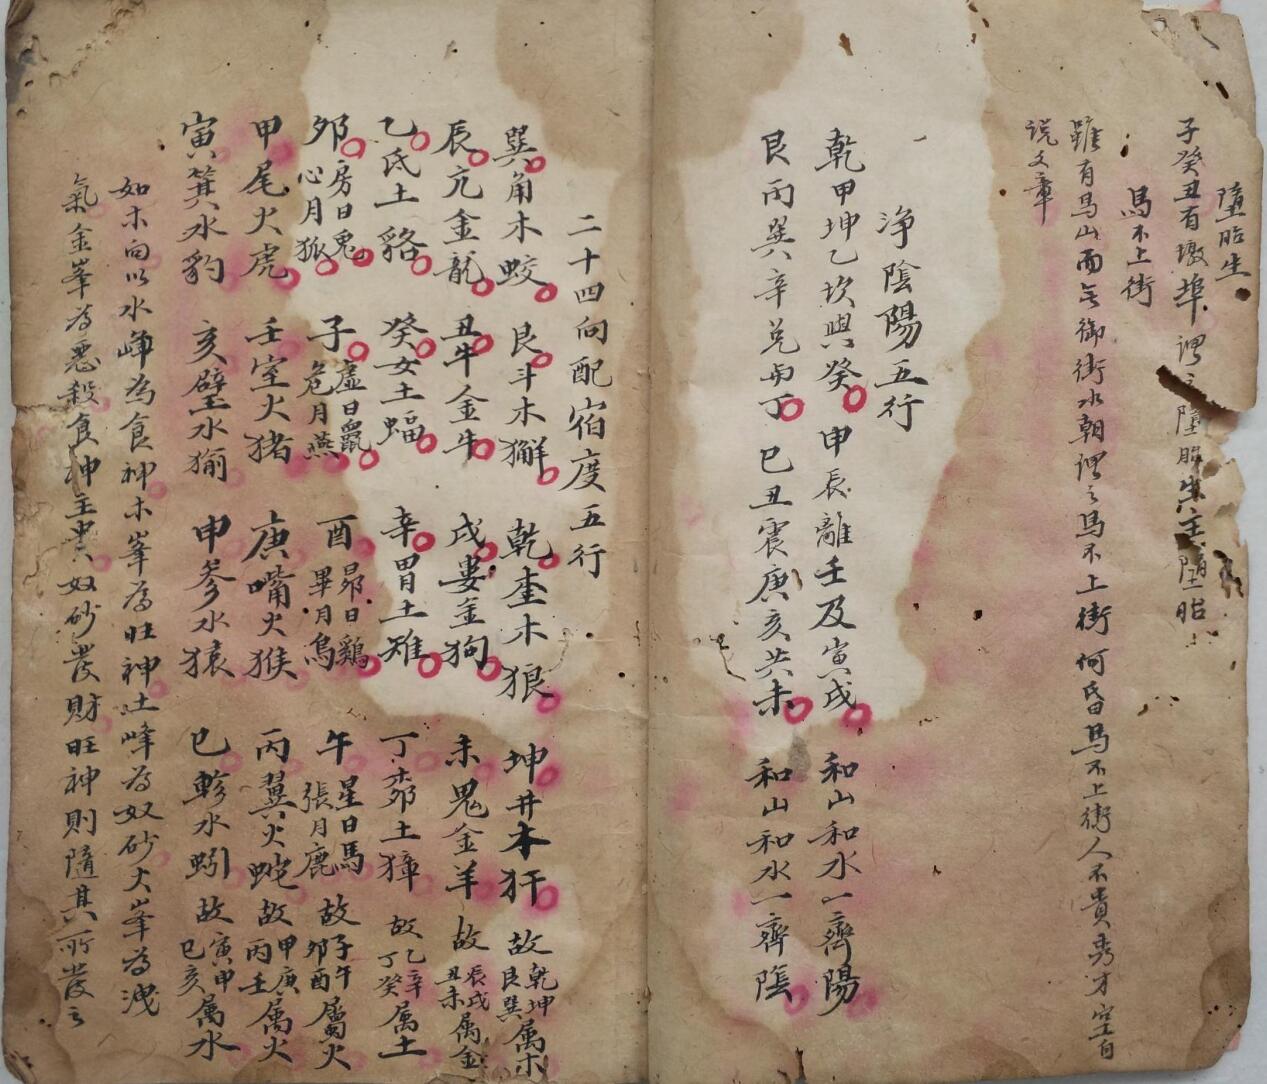 墮胎生
子癸丑有墩埠謂之墮胎生主墮胎
馬不上街
雖有馬山而無御街水朝謂之馬不上街何昏馬不上街人不貴秀才空自
説文章
净陰陽五行
乾甲坤乙坎與癸甲辰離壬及寅戌和山和水一齊陽
艮丙巽辛兑与丁巳丑震庚亥共未和山和水一齊陰
二十四向配宿度五行
巽角木蛟艮斗木獬乾奎木狼坤井木犴故乾坤艮巽属木
辰亢金龍丑牛金牛戌婁金狗未鬼金羊故辰戌丑未属金
乙氐土貉癸女土蝠辛胃土雉丁柳土獐故乙辛丁癸属土
夘房日兔心月狐子虚日鼠危月燕酉昴日鷄畢月烏午星日馬張月鹿故子午夘酉屬火
甲尾火虎壬室火猪庚嘴火猴丙翼火蛇故甲庚丙壬属火
寅箕水豹亥壁水㺄申參水猿巳軫水蚓故寅申巳亥属水
如木向以水峰為食神木峯為旺神土峰為奴砂火峯為洩
氣金峯為惡殺食神主貴奴砂發財旺神則隨其所發之